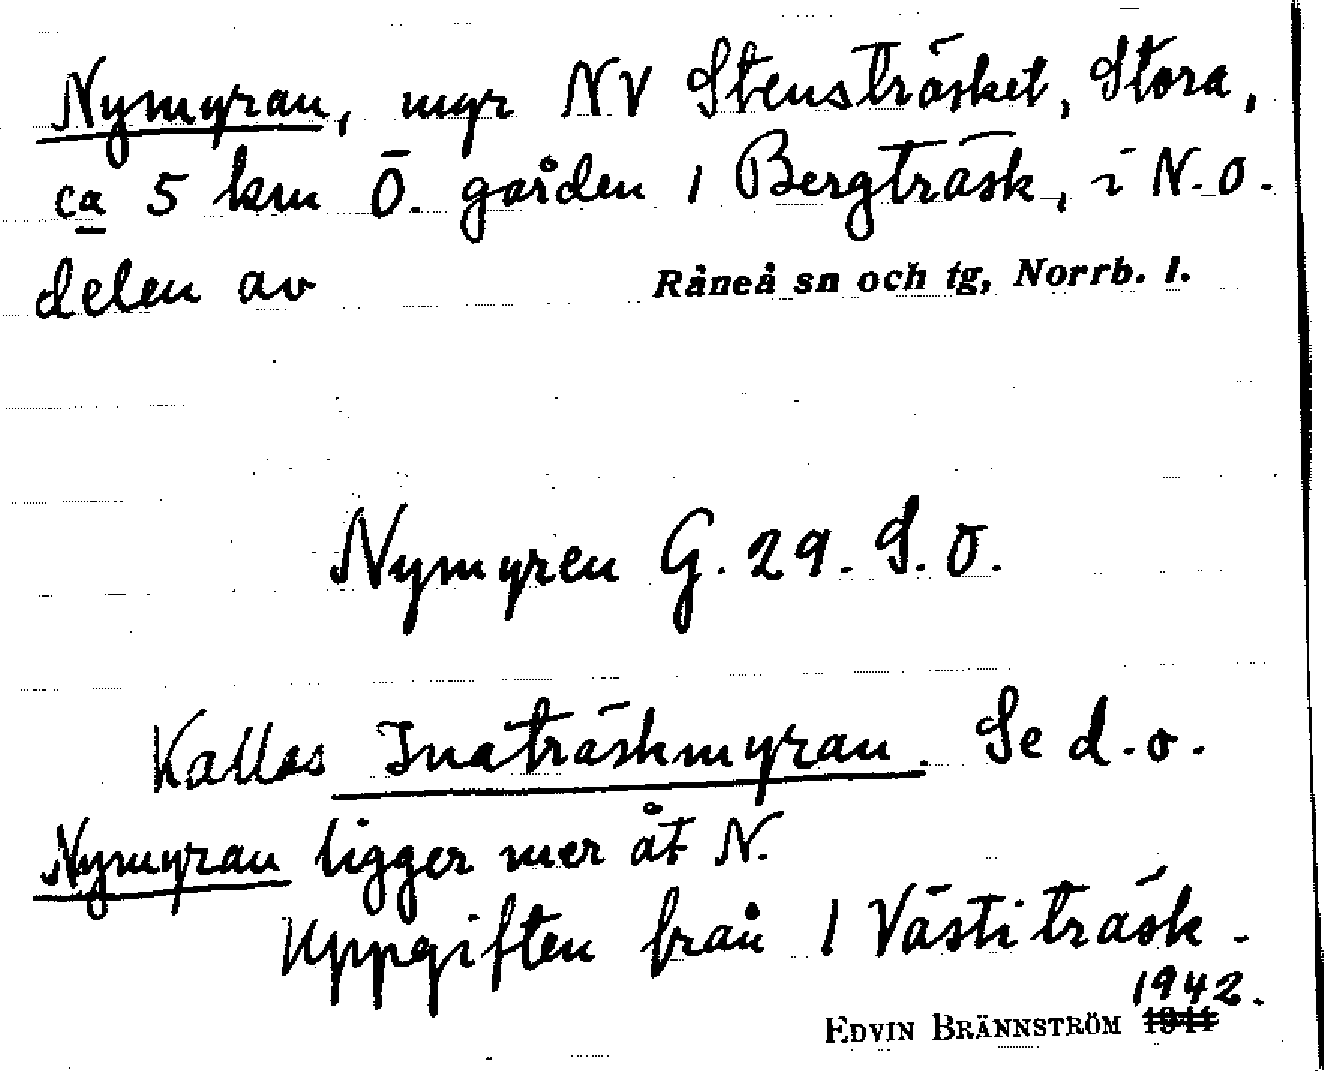 Nymyran, myr NV Stensträsket, Stora,
ca 5 km Ö. gården 1 Bergträsk, i N.O.
delen av Råneå sn och tg, Norrb. l.
Nymyren G. 29. S. O.
Kallas Inaträskmyran. Se d.o.
Nymyran ligger mer åt N.
Uppgiften från 1 Västiträsk.
1942.
EDVIN BRÄNNSTRÖM 1941